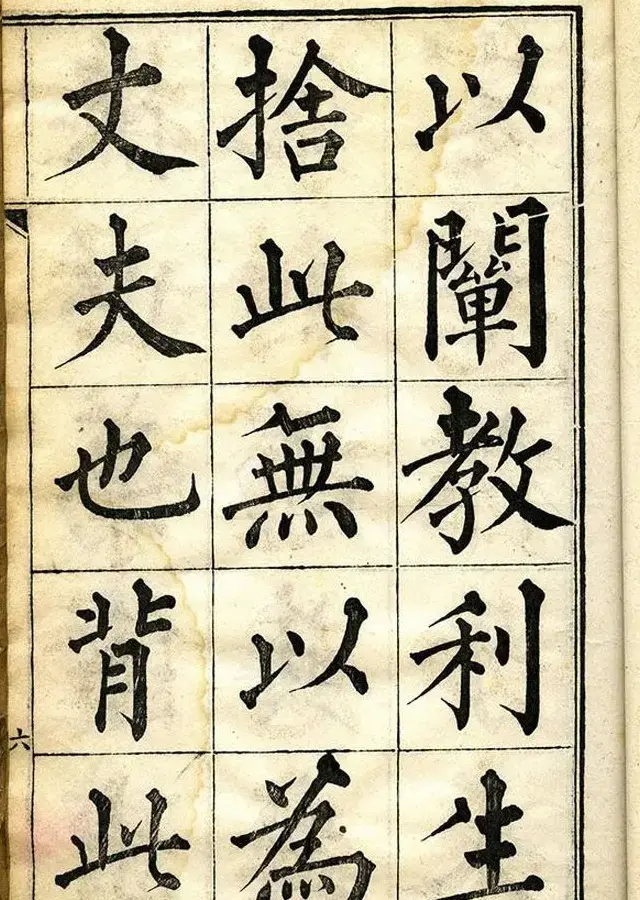 以闡教利生
捨此無以為
丈夫也背此
六